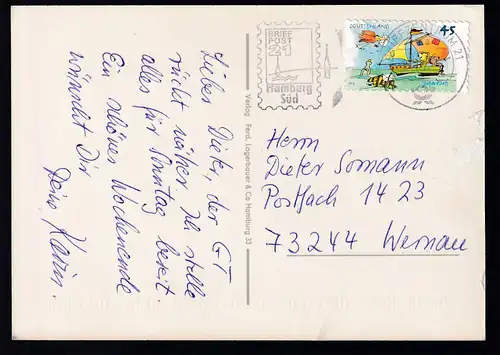 Lieber Dieter, der GT
rückt näher. Ich stelle
alles für Sonntag bereit.
Ein schönes Wochenende
wünscht Dir
Deine Karin.
Verlag Ferd. Lagerbauer & Co Hamburg 33
BRIEF
POST
21
Hamburg
Süd
DEUTSCHLAND
45
21
Herrn
Dieter Somann
Postfach 1423
73244 Wernau